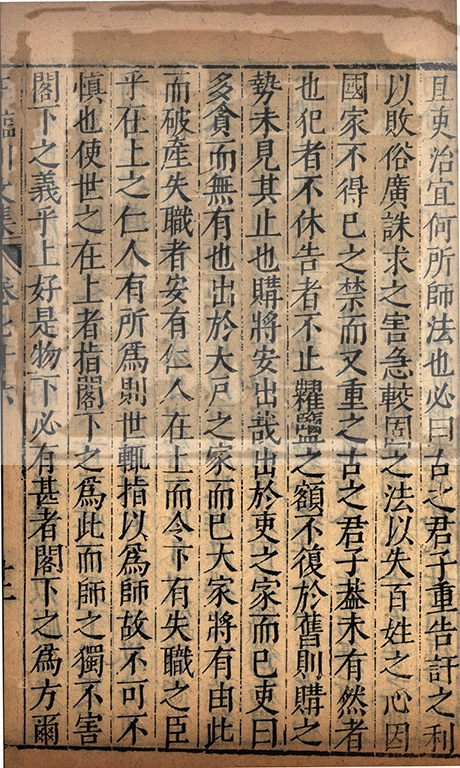 且吏治宜何所師法也必曰古之君子重告訐之利
以敗俗廣誅求之害急較固之法以失百姓之心因
國家不得已之禁而又重之古之君子蓋未有然者
也犯者不休告者不止糶鹽之額不復於舊則購之
勢未見其止也購將安出哉出於吏之家而已吏曰
多貪而無有也出於大戶之家而已大家將有由此
而破產失職者安有仁人在上而令下有失職之臣
乎在上之仁人有所為則世輒指以為師故不可不
慎也使世之在上者指閣下之為此而師之獨不害
閣下之義乎上好是物下必有甚者閣下之為方爾
臨川文集 卷七十六